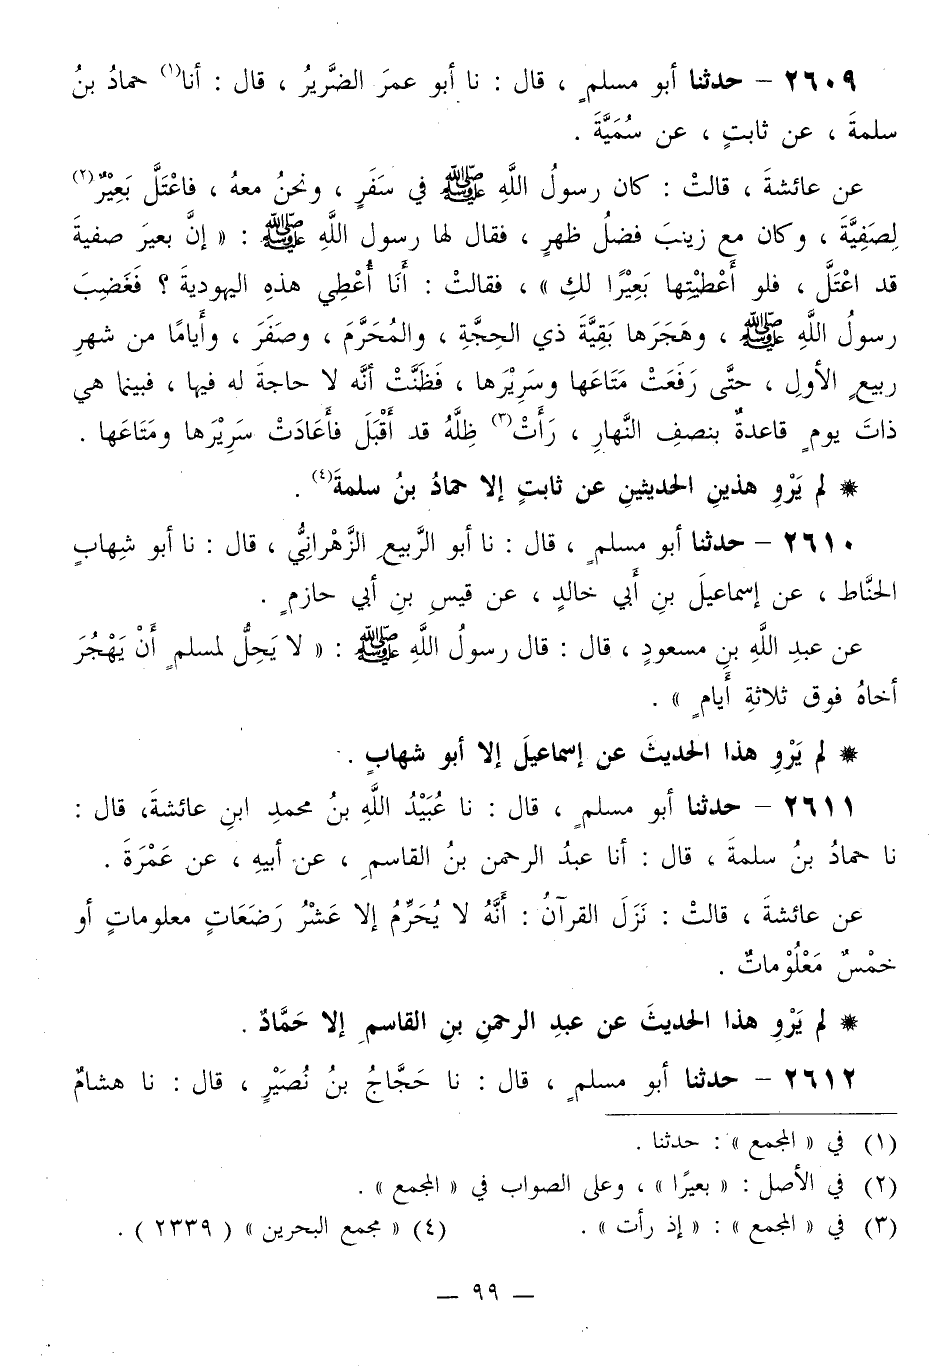 ٢٦٠٩ – حدثنا أبو مسلمٍ ، قال : نا أبو عمرَ الضَّريرُ ، قال : أنا(١) حمادُ بنُ
سلمةَ ، عن ثابتٍ ، عن سُمَيَّةَ .
عن عائشةَ ، قالتْ : كان رسولُ اللَّهِ ﷺ في سَفَرٍ ، ونحنُ معهُ ، فاعْتَلَّ بَعِيْرٌ(٢)
لِصَفِيَّةَ ، وكان مع زينبَ فضلُ ظهرٍ ، فقال لها رسول اللَّهِ ﷺ : « إنَّ بعيرَ صفيةَ
قد اعْتَلَّ ، فلو أَعْطَيْتِها بَعِيْرًا لكِ » ، فقالتْ : أَنَا أُعْطِي هذهِ اليهوديةَ ؟ فَغَضِبَ
رسولُ اللَّهِ ﷺ ، وهَجَرَها بَقِيَّةَ ذي الحِجَّةِ ، والمُحَرَّمَ ، وصفَرَ ، وأَيامًا من شهرِ
ربيعٍ الأولِ ، حتَّى رَفَعَتْ مَتَاعَها وسَرِيْرَها ، فَظَنَّتْ أنَّه لا حاجةَ له فيها ، فبينما هي
ذاتَ يومٍ قاعدةٌ بنصفِ النَّهارِ ، رَأَتْ(٣) ظِلَّهُ قد أَقْبَلَ فأَعَادَتْ سَرِيْرَها ومَتَاعَها .
٭ لم يَرْوِ هذينِ الحديثينِ عن ثابتٍ إلا حمادُ بنُ سلمةَ(٤) .
٢٦١٠ – حدثنا أبو مسلمٍ ، قال : نا أبو الرَّبيعِ الزَّهْرانِيُّ ، قال : نا أبو شِهابٍ
الحنَّاط ، عن إسماعيلَ بنِ أَبي خالدٍ ، عن قيسِ بنِ أبي حازمٍ .
عن عبدِ اللَّهِ بنِ مسعودٍ ، قال : قال رسولُ اللَّهِ ﷺ : « لا يَحِلُّ لمسلمٍ أَنْ يَهْجُرَ
أخاهُ فوق ثلاثةِ أَيامٍ » .
٭ لم يَرْوِ هذا الحديثَ عن إسماعيلَ إلا أبو شهابٍ .
٢٦١١ – حدثنا أبو مسلمٍ ، قال : نا عُبَيْدُ اللَّهِ بنُ محمدِ ابنِ عائشةَ، قال :
نا حمادُ بنُ سلمةَ ، قال : أنا عبدُ الرحمن بنُ القاسمِ ، عن أبيهِ ، عن عَمْرَةَ .
عن عائشةَ ، قالتْ : نَزَلَ القرآنُ : أَنَّهُ لا يُحَرِّمُ إلا عَشْرُ رَضَعَاتٍ معلوماتٍ أو
خمْسٌ مَعْلُوْماتٌ .
٭ لم يَرْوِ هذا الحديثَ عن عبدِ الرحمنِ بنِ القاسمِ إلا حَمَّادٌ .
٢٦١٢ – حدثنا أبو مسلمٍ ، قال : نا حَجَّاجُ بنُ نُصَيْرٍ ، قال : نا هشامٌ
(١) في « المجمع » : حدثنا .
(٢) في الأصل : « بعيرًا » ، وعلى الصواب في « المجمع » .
(٣) في « المجمع » : « إذ رأت » . (٤) « مجمع البحرين » ( ٢٣٣٩ ) .
— ٩٩ —